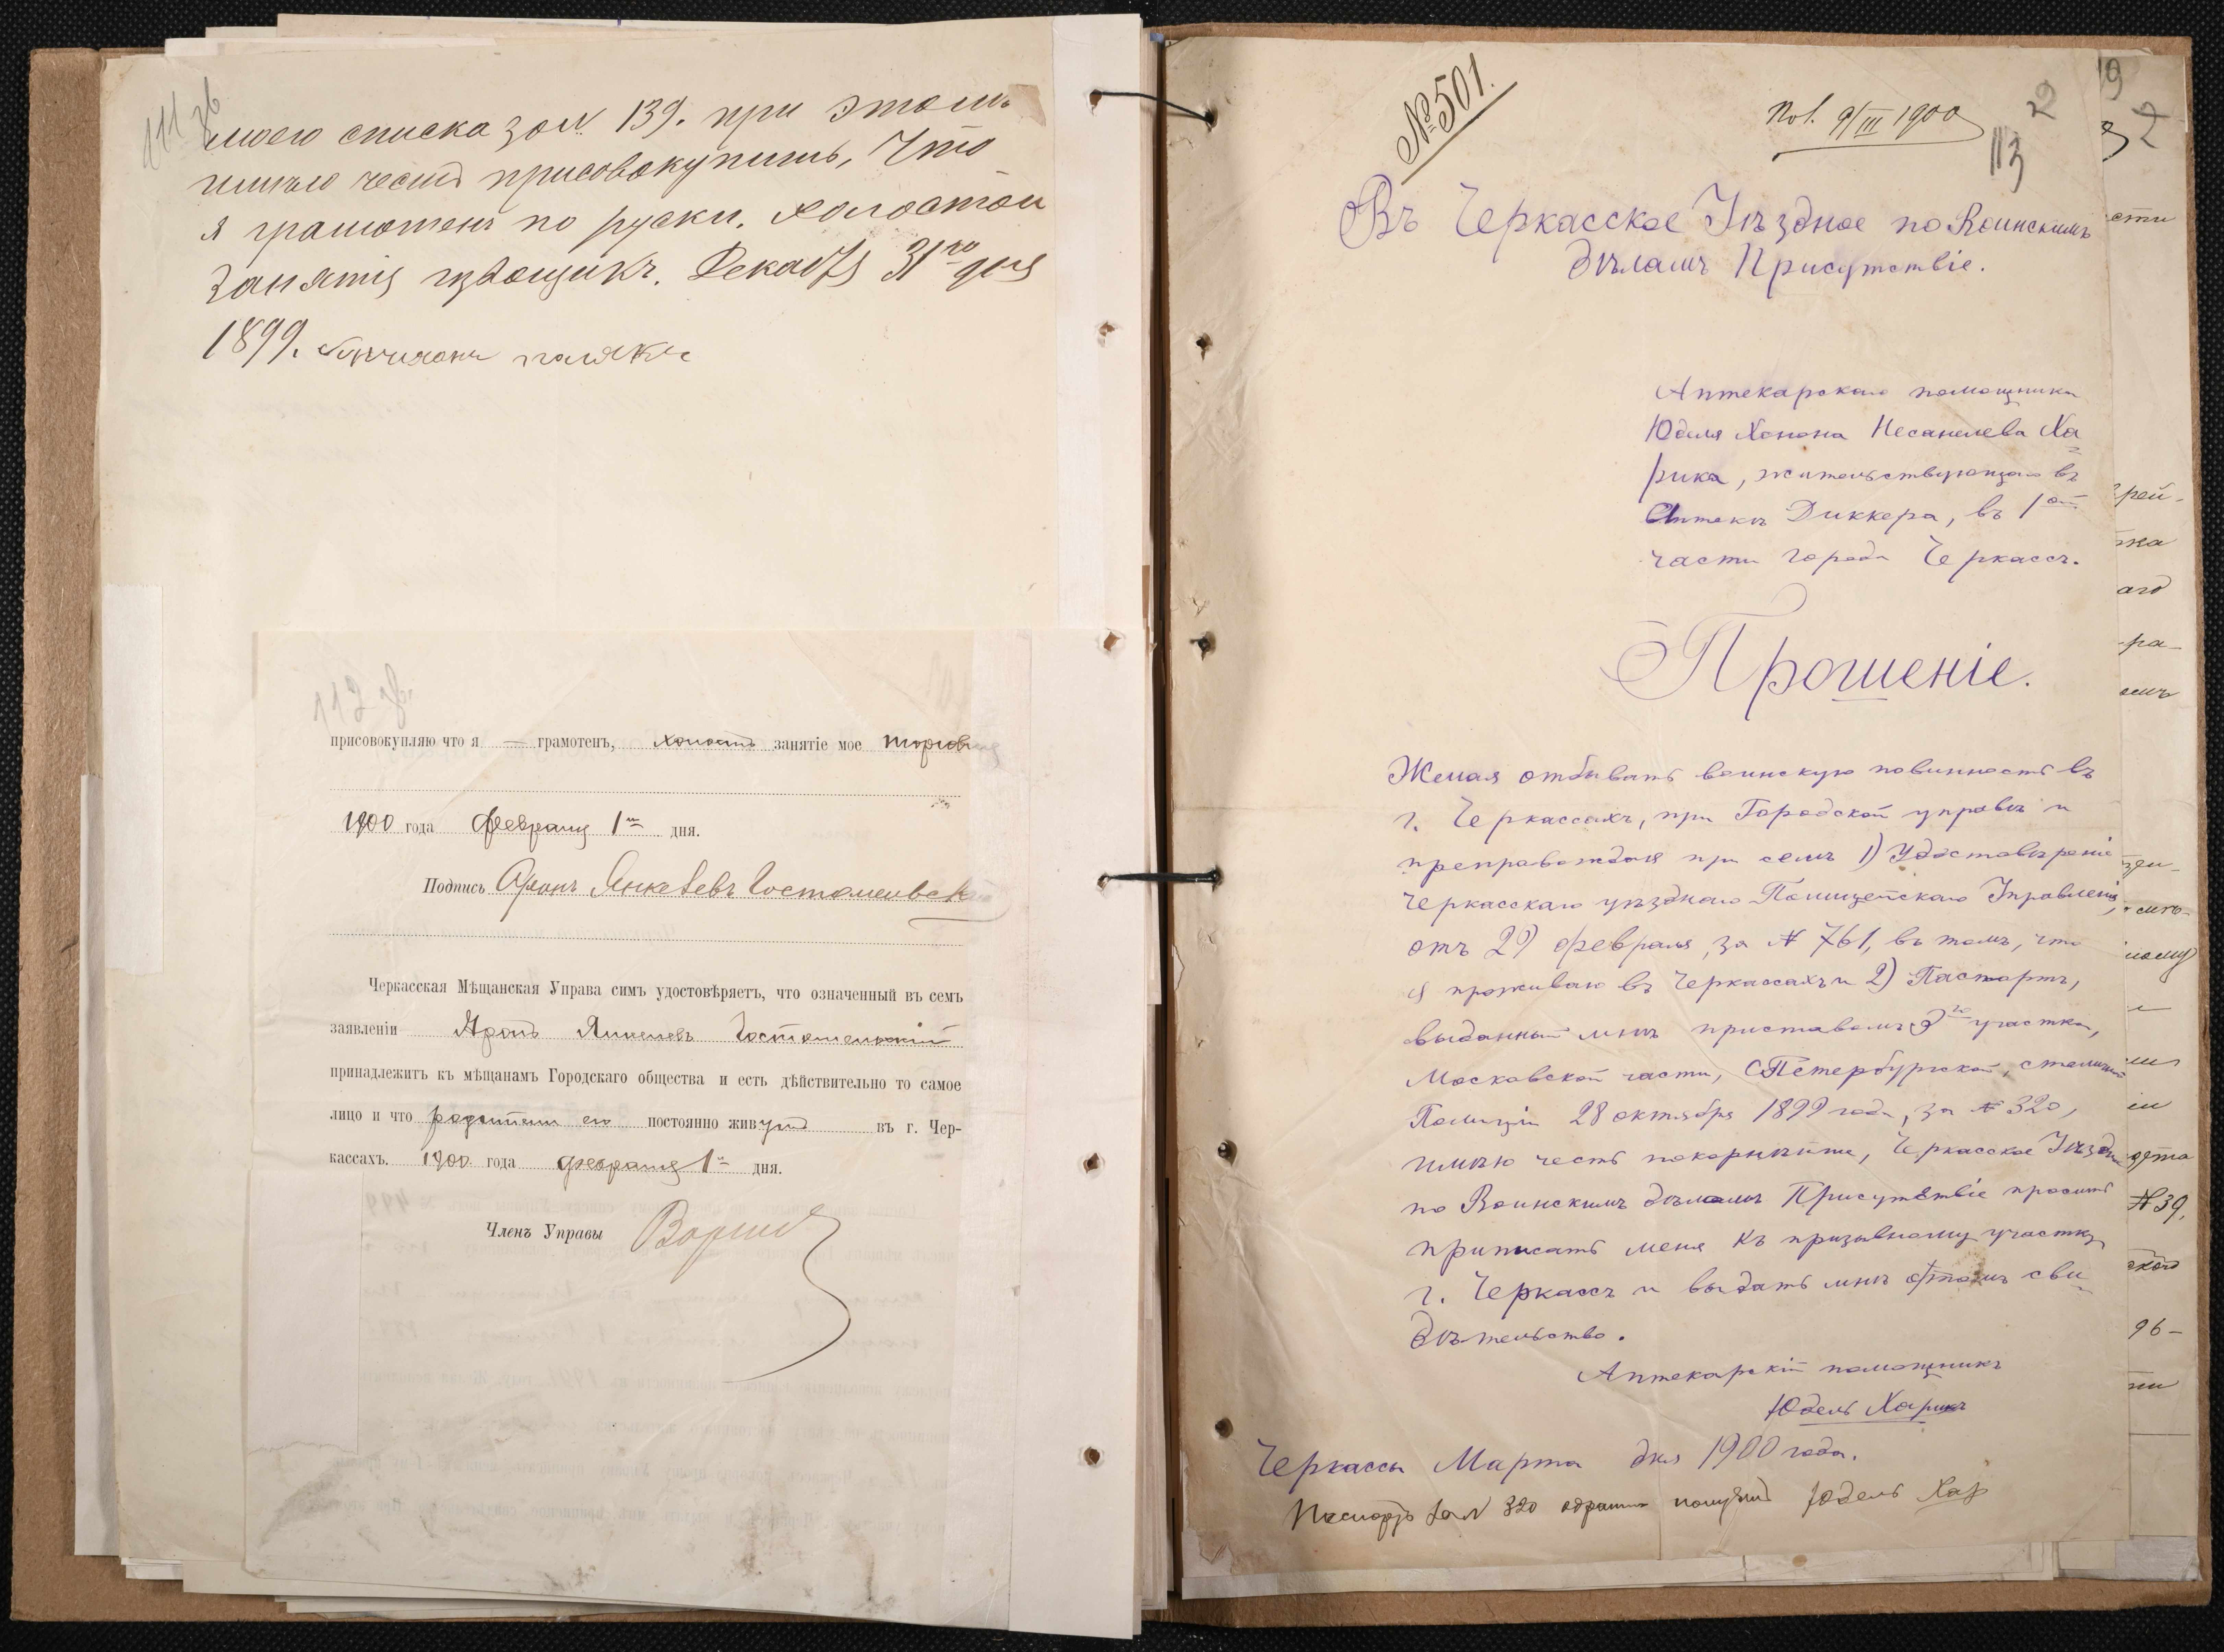 111 зв
моего списка за № 139. при этомъ
имѣю честь присовокупить, что
я грамотенъ по руски. холостой
Занятія извощикъ. Декабря 31го дня
1899.
112 зв
присовокупляю что я — грамотенъ, холостъ занятіе мое торговля
1900 года Февраля 1го дня.
Подпись Аронъ Янкелевъ Гостомельскій
Черкасская Мѣщанская Управа симъ удостовѣряетъ, что означенный въ семъ
заявленіи Аронъ Янкелевъ Гостомельскій
принадлежитъ къ мѣщанамъ Городскаго общества и есть дѣйствительно то самое
лицо и что родители его постоянно живутъ въ г. Чер-
кассахъ. 1900 года февраля 1го дня.
Членъ Управы
№ 501.
Пол. 9/III 1900
113
Въ Черкасское Уѣздное по Воинскимъ
дѣламъ Присутствіе.
Аптекарскаго помощника
Юделя Хонона Несанелева Ха
рика, жительствующаго въ
Аптекѣ Диккера, въ 1ой
части города Черкассъ.
Прошеніе.
Желая отбывать воинскую повинность въ
г. Черкассахъ, при Городской управѣ и
препровождая при семъ 1) Удостовѣреніе
Черкасскаго уѣзднаго Полицейскаго Управленія,
отъ 29 февраля, за № 761, въ томъ, что
я проживаю въ Черкассахъ и 2) Паспортъ,
выданный мнѣ приставомъ 2го участка,
Московской части, С Петербургской, столичной
Полиціи 28 октября 1899 года, за № 320,
имѣю честь покорнѣйше, Черкасское Уѣздное
по Воинскимъ дѣламъ Присутствіе просить
приписать меня къ призывному участку
г. Черкассъ и выдать мнѣ о томъ сви
дѣтельство.
Аптекарскій помощникъ
Юдель Харикъ
Черкассы Марта дня 1900 года.
Паспортъ за № 320 обратно получилъ Юдель Хар